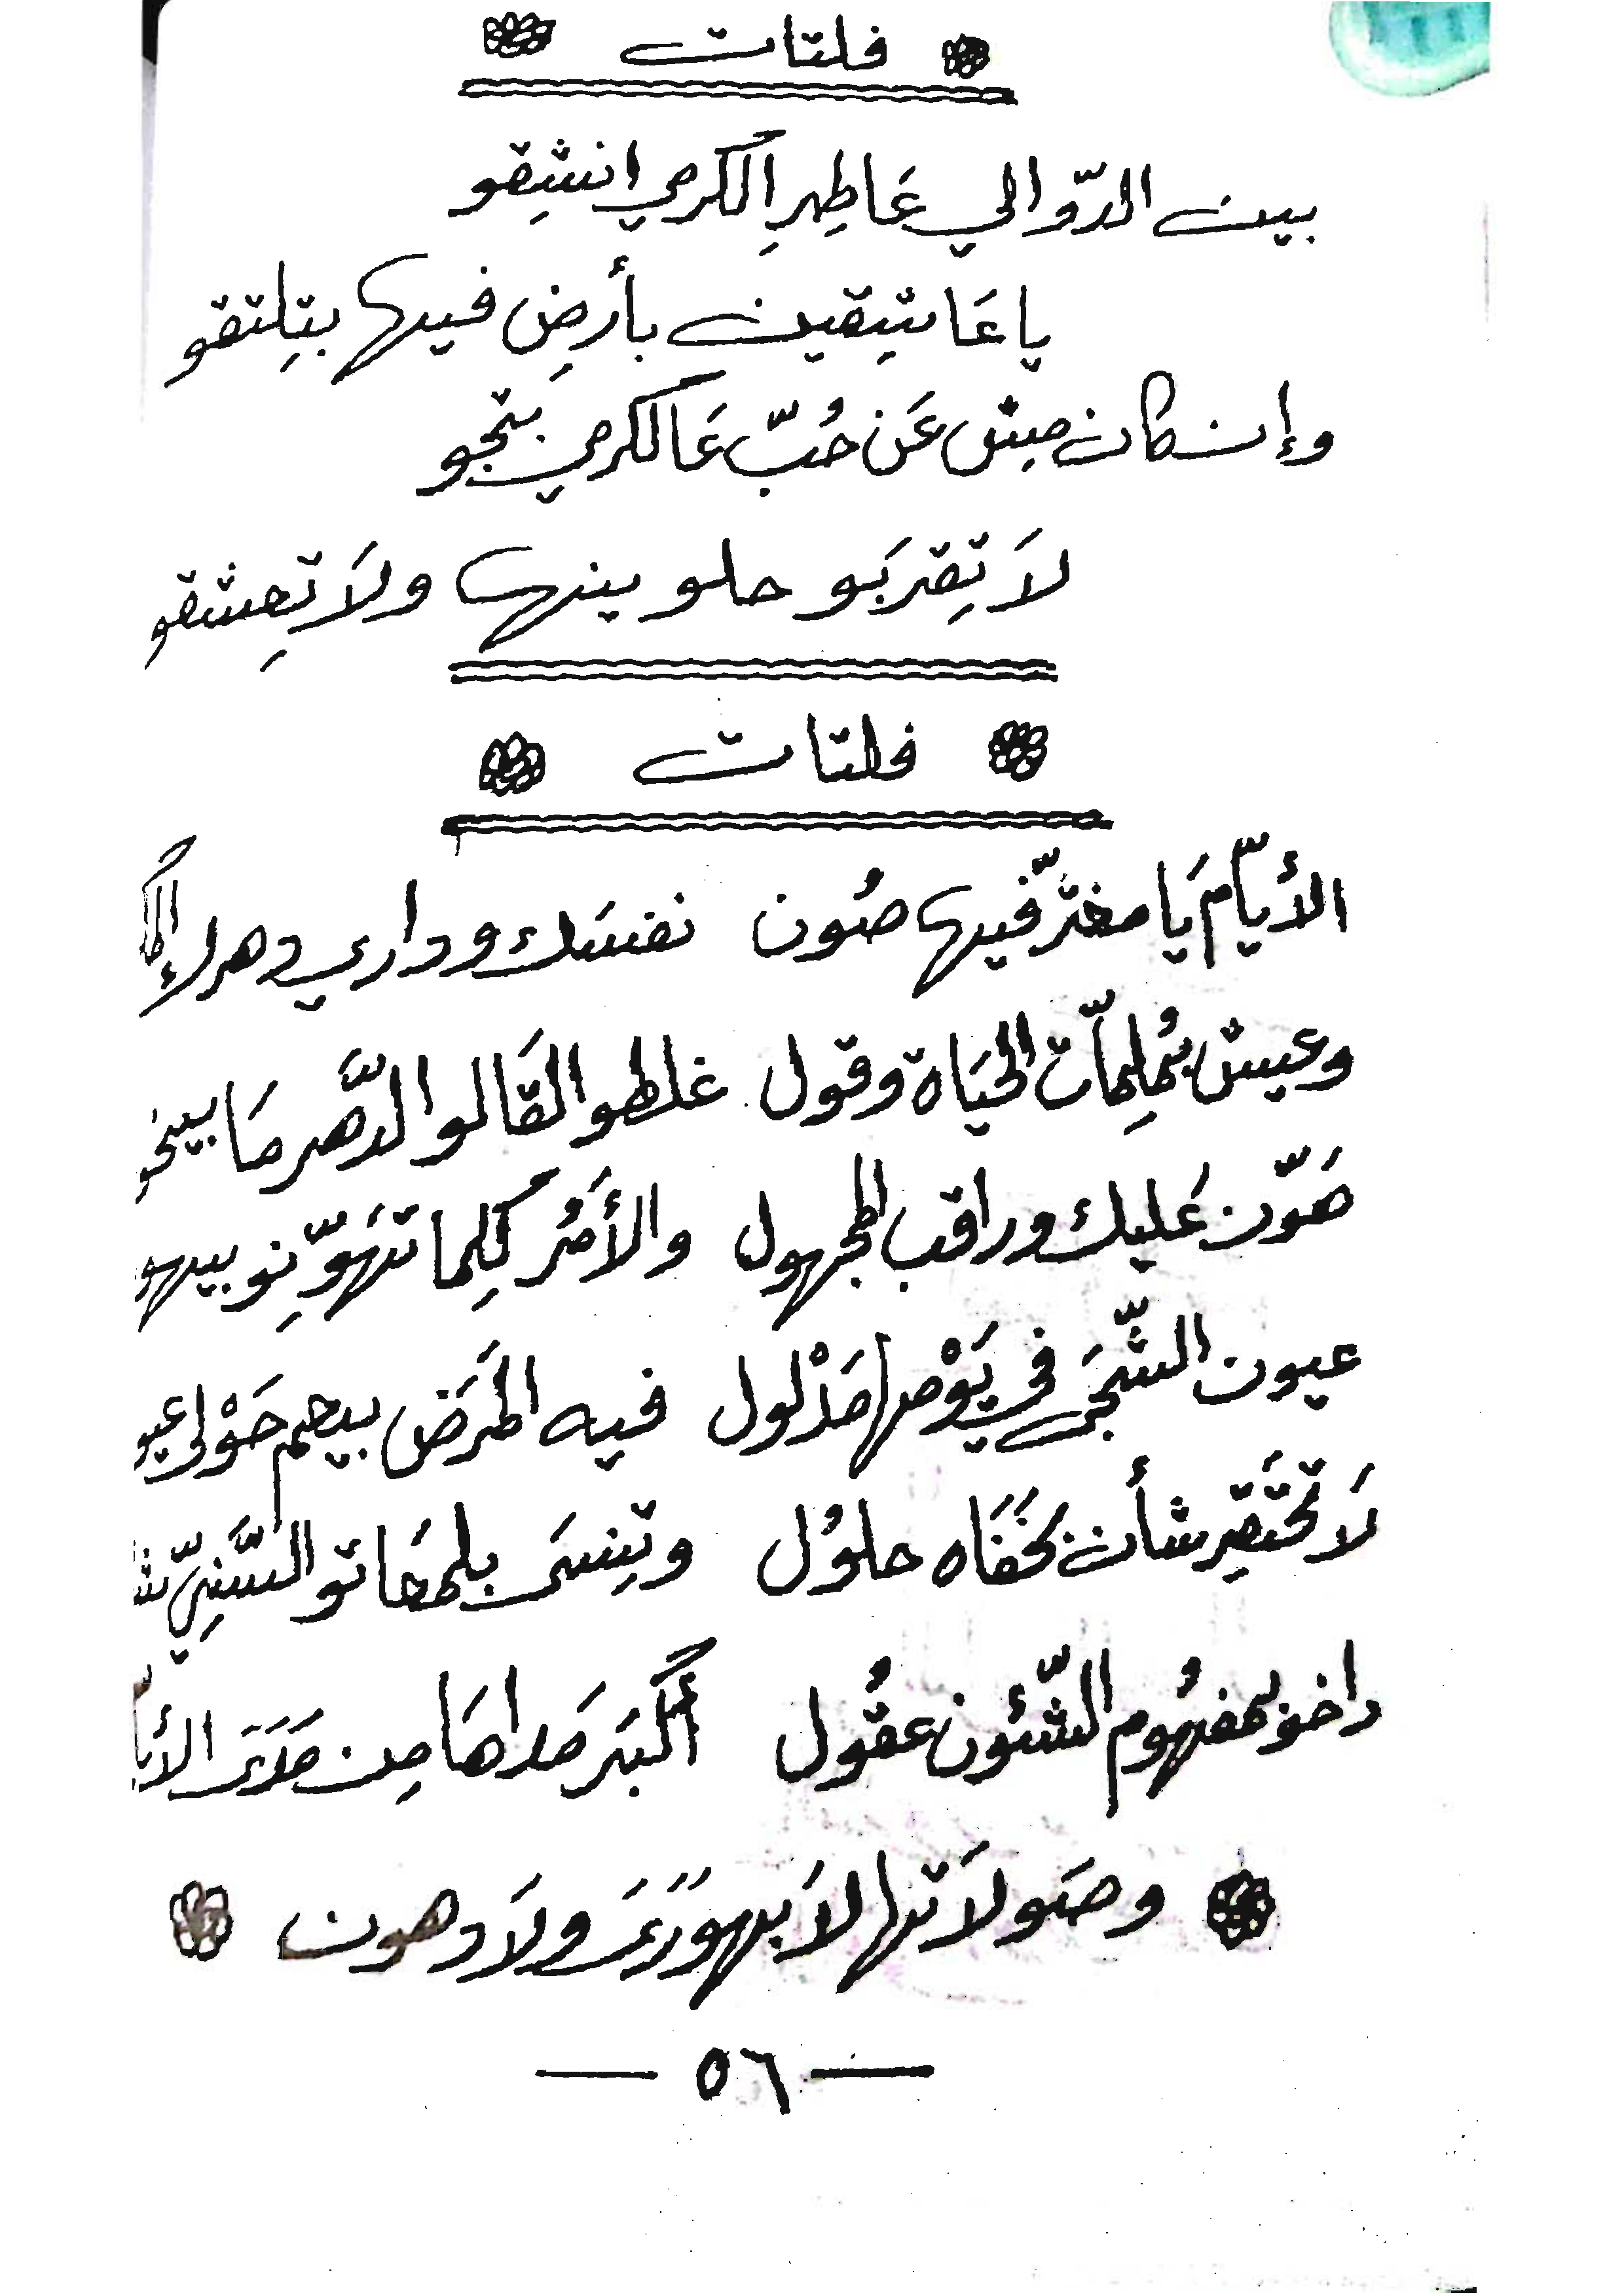 فلتات
بين الدّوالي عَاطِهرِ الكرمي انشِقو
يا عَاشِقين بأرضِ فيها بتِلتقو
وإن كان مِش عَن حُبّ عَالكرمي بتجو
لاَ تِقربَو حلوينها ولاَ تِعشقو
فلتات
الأيّام يَا مغترّ فيها صُون نفسَك وداري دهرك
وعيش بمُلِمّات الحيَاة وقول غلطو القَالو الدَّهر مَا
هَوّن عَليك وراقب المجهول والأمُر كِلما تهَوّنِو
عيون الشّجَر في يَوْمها مَدْلول فيه المَرَض بيحم حَوْلي
لاَ تحتَقِر شأن بخَفَاه حلوُل وتِنسَى بلمحَاتو السَّنِيّ
داخو بمفهُوم الشّئون عقُول أكبَر مَداهَا مِن مَدَىَ
وصَولاَتها لاَ بهوَرَىَ ولاَ دهون
— ٥٦ —